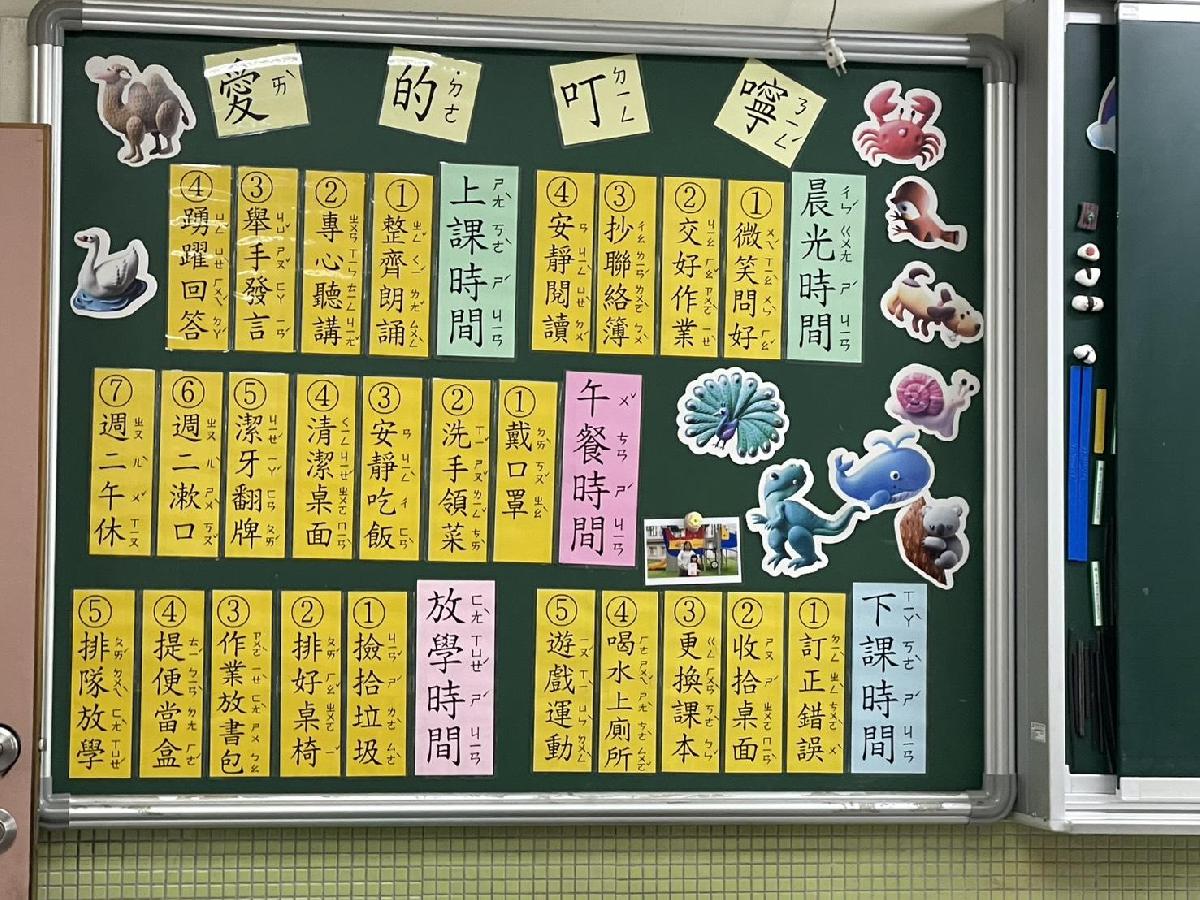 愛的叮嚀
晨光時間
①微笑問好
②交好作業
③抄聯絡簿
④安靜閱讀
上課時間
①整齊朗誦
②專心聽講
③舉手發言
④踴躍回答
午餐時間
①戴口罩
②洗手領菜
③安靜吃飯
④清潔桌面
⑤潔牙翻牌
⑥週二漱口
⑦週二午休
下課時間
①訂正錯誤
②收拾桌面
③更換課本
④喝水上廁所
⑤遊戲運動
放學時間
①撿拾垃圾
②排好桌椅
③作業放書包
④提便當盒
⑤排隊放學